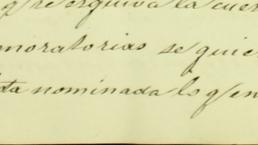 q re esquiva la cuer
moratorias se quie
ta nominada lo q en